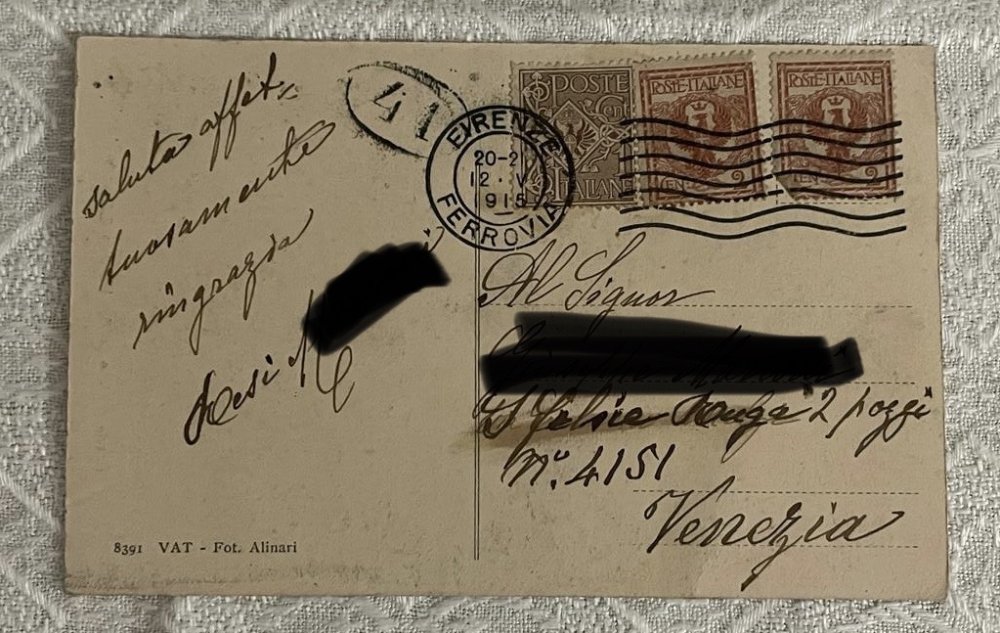 saluta affet=
tuosamente
ringrazia
41
FIRENZE
FERROVIA
20-2
12 · V
915
POSTE
ITALIANE
POSTE·ITALIANE
CEN 2
POSTE·ITALIANE
CEN 2
Al Signor
S Felice "2 pozzi"
N.º 4151
Venezia
8391 VAT - Fot. Alinari